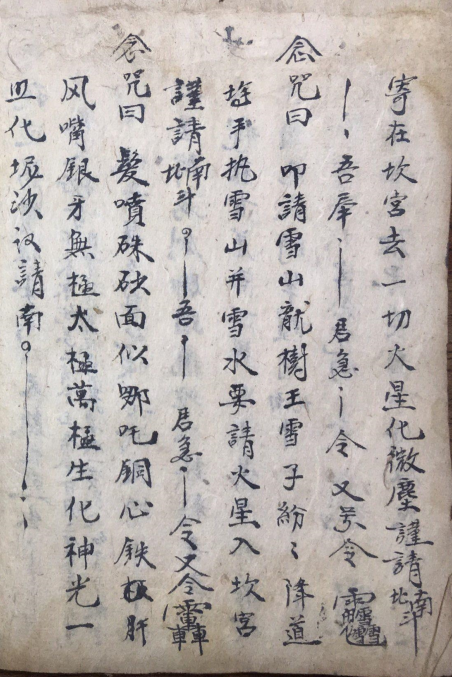 寄在坎宮去一切火星化微塵謹請南北斗
吾奉君急令又令
念咒曰 叩請雪山龍樹王雪子紛〻降道
手执雪山并雪水要請火星入坎宮
謹請南北斗吾君急令又令
念咒曰 髮噴硃砂面似哪吒銅心鉄板肝
风嘴銀牙無極太極萬極生化神光一
化沙請南